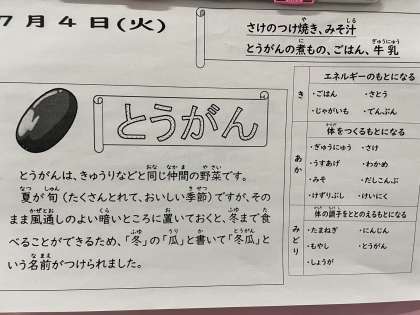 7月4日(火)
さけのつけ焼き、みそ汁
とうがんの煮もの、ごはん、牛乳
とうがん
とうがんは、きゅうりなどと同じ仲間の野菜です。
夏が旬(たくさんとれて、おいしい季節)ですが、その
まま風通しのよい暗いところに置いておくと、冬まで食
べることができるため、「冬」の「瓜」と書いて「冬瓜」と
いう名前がつけられました。
き
エネルギーのもとになる
・ごはん ・さとう
・じゃがいも ・でんぷん
あか
体をつくるもとになる
・ぎゅうにゅう ・さけ
・うすあげ ・わかめ
・みそ ・だしこんぶ
・けずりぶし ・けいにく
みどり
体の調子をととのえるもとになる
・たまねぎ ・にんじん
・もやし ・とうがん
・しょうが